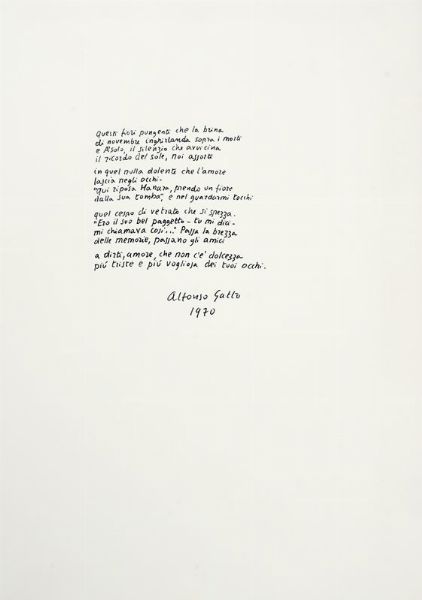 Questi fiori pungenti che la brina
di novembre inghirlanda sopra i morti
e Asolo, il silenzio che avvicina
il ricordo del sole, noi assorti
in quel nulla dolente che l'amore
lascia negli occhi.
"Qui riposa Hanum, prendo un fiore
dalla sua tomba", e nel guardarmi tocchi
quel cespo di vetrato che si spezza.
"Ero il suo bel paggetto - tu mi dici -
mi chiamava così..." Passa la brezza
delle memorie, passano gli amici
a dirti, amore, che non c'è dolcezza
più triste e più vogliosa dei tuoi occhi.
Alfonso Gatto
1970